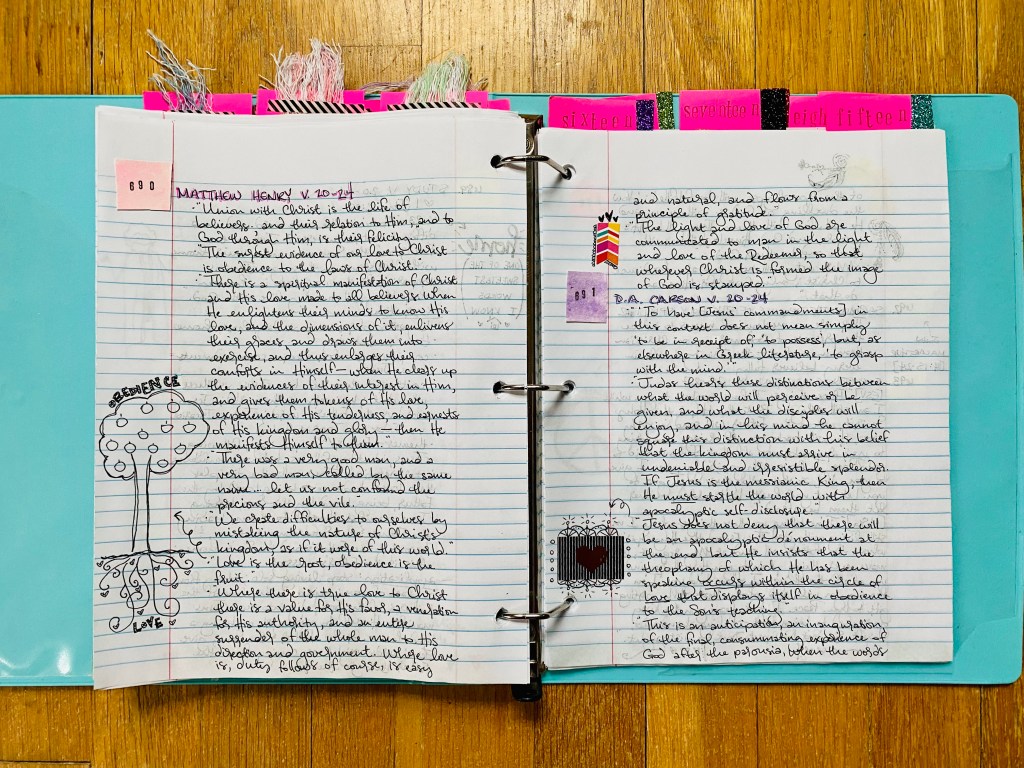 sixteen
seventeen
eigh
fifteen
690
MATTHEW HENRY V. 20-24
"Union with Christ is the life of
believers, and their relation to Him, and to
God through Him, is their felicity."
"The surest evidence of our love to Christ
is obedience to the laws of Christ."
"There is a spiritual manifestation of Christ
and His love made to all believers. When
He enlightens their minds to know His
love, and the dimensions of it, enlivens
their graces, and draws them into
exercise, and thus enlarges their
comforts in Himself — when He clears up
the evidences of their interest in Him,
and gives them tokens of His love,
experience of His tenderness, and earnests
of His kingdom and glory — then He
manifests Himself to them."
"There was a very good man, and a
very bad man called by the same
name... let us not confound the
precious and the vile.
"We create difficulties to ourselves by
mistaking the nature of Christ's
kingdom, as if it were of this world."
"Love is the root, obedience is the
fruit."
"Where there is true love to Christ
there is a value for His favor, a veneration
for His authority, and an entire
surrender of the whole man to His
direction and government. Where love
is, duty follows of course, is easy
OBEDIENCE
LOVE
and natural, and flows from a
principle of gratitude."
"The light and love of God are
communicated to man in the light
and love of the Redeemer, so that
wherever Christ is formed the image
of God is stamped."
691
D.A. CARSON V. 20-24
"'To have' [Jesus' commandments] in
this context does not mean simply
'to be in receipt of,' 'to possess,' but, as
elsewhere in Greek literature, 'to grasp
with the mind.'"
"Judas hears these distinctions between
what the world will perceive or be
given, and what the disciples will
enjoy, and in his mind he cannot
square this distinction with his belief
that the kingdom must arrive in
undeniable and irresistible splendor.
If Jesus is the messianic King, then
He must startle the world with
apocalyptic self-disclosure.
"Jesus does not deny that there will
be an apocalyptic denoument at
the end, but He insists that the
theophany of which He has been
speaking occurs within the circle of
Love that displays itself in obedience
to the Son's teaching."
"This is an anticipation, an inauguration,
of the final, consummating experience of
God after the parousia, when the words